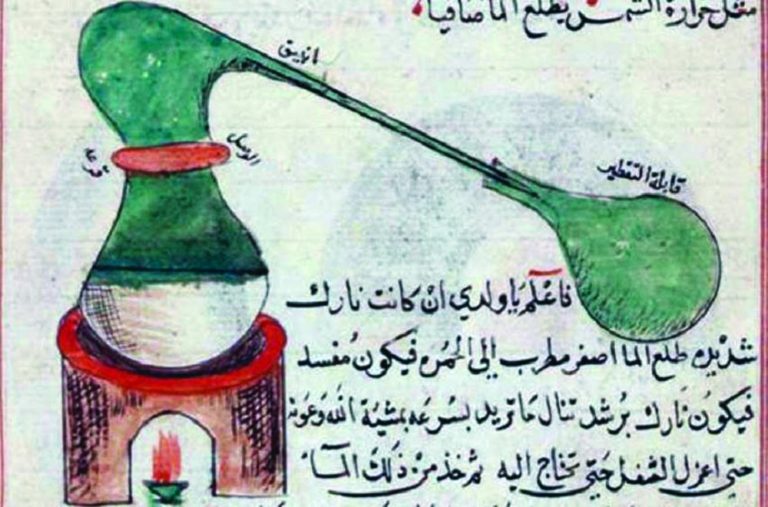 مثل حرارة الشمس يطلع الما صافيا
انبيق
الوصل
قرعه
قابلة التقطير
فاعلم يا ولدي ان كانت نارك
شديده طلع الما اصفر مطرب إلى الحمره فيكون مفسد
فيكون نارك برشد تنال ما تريد بسرعه بمشية الله وعونه
حتى اعزل الثفل حتى تحتاج اليه ثم خذ من ذلك الماء